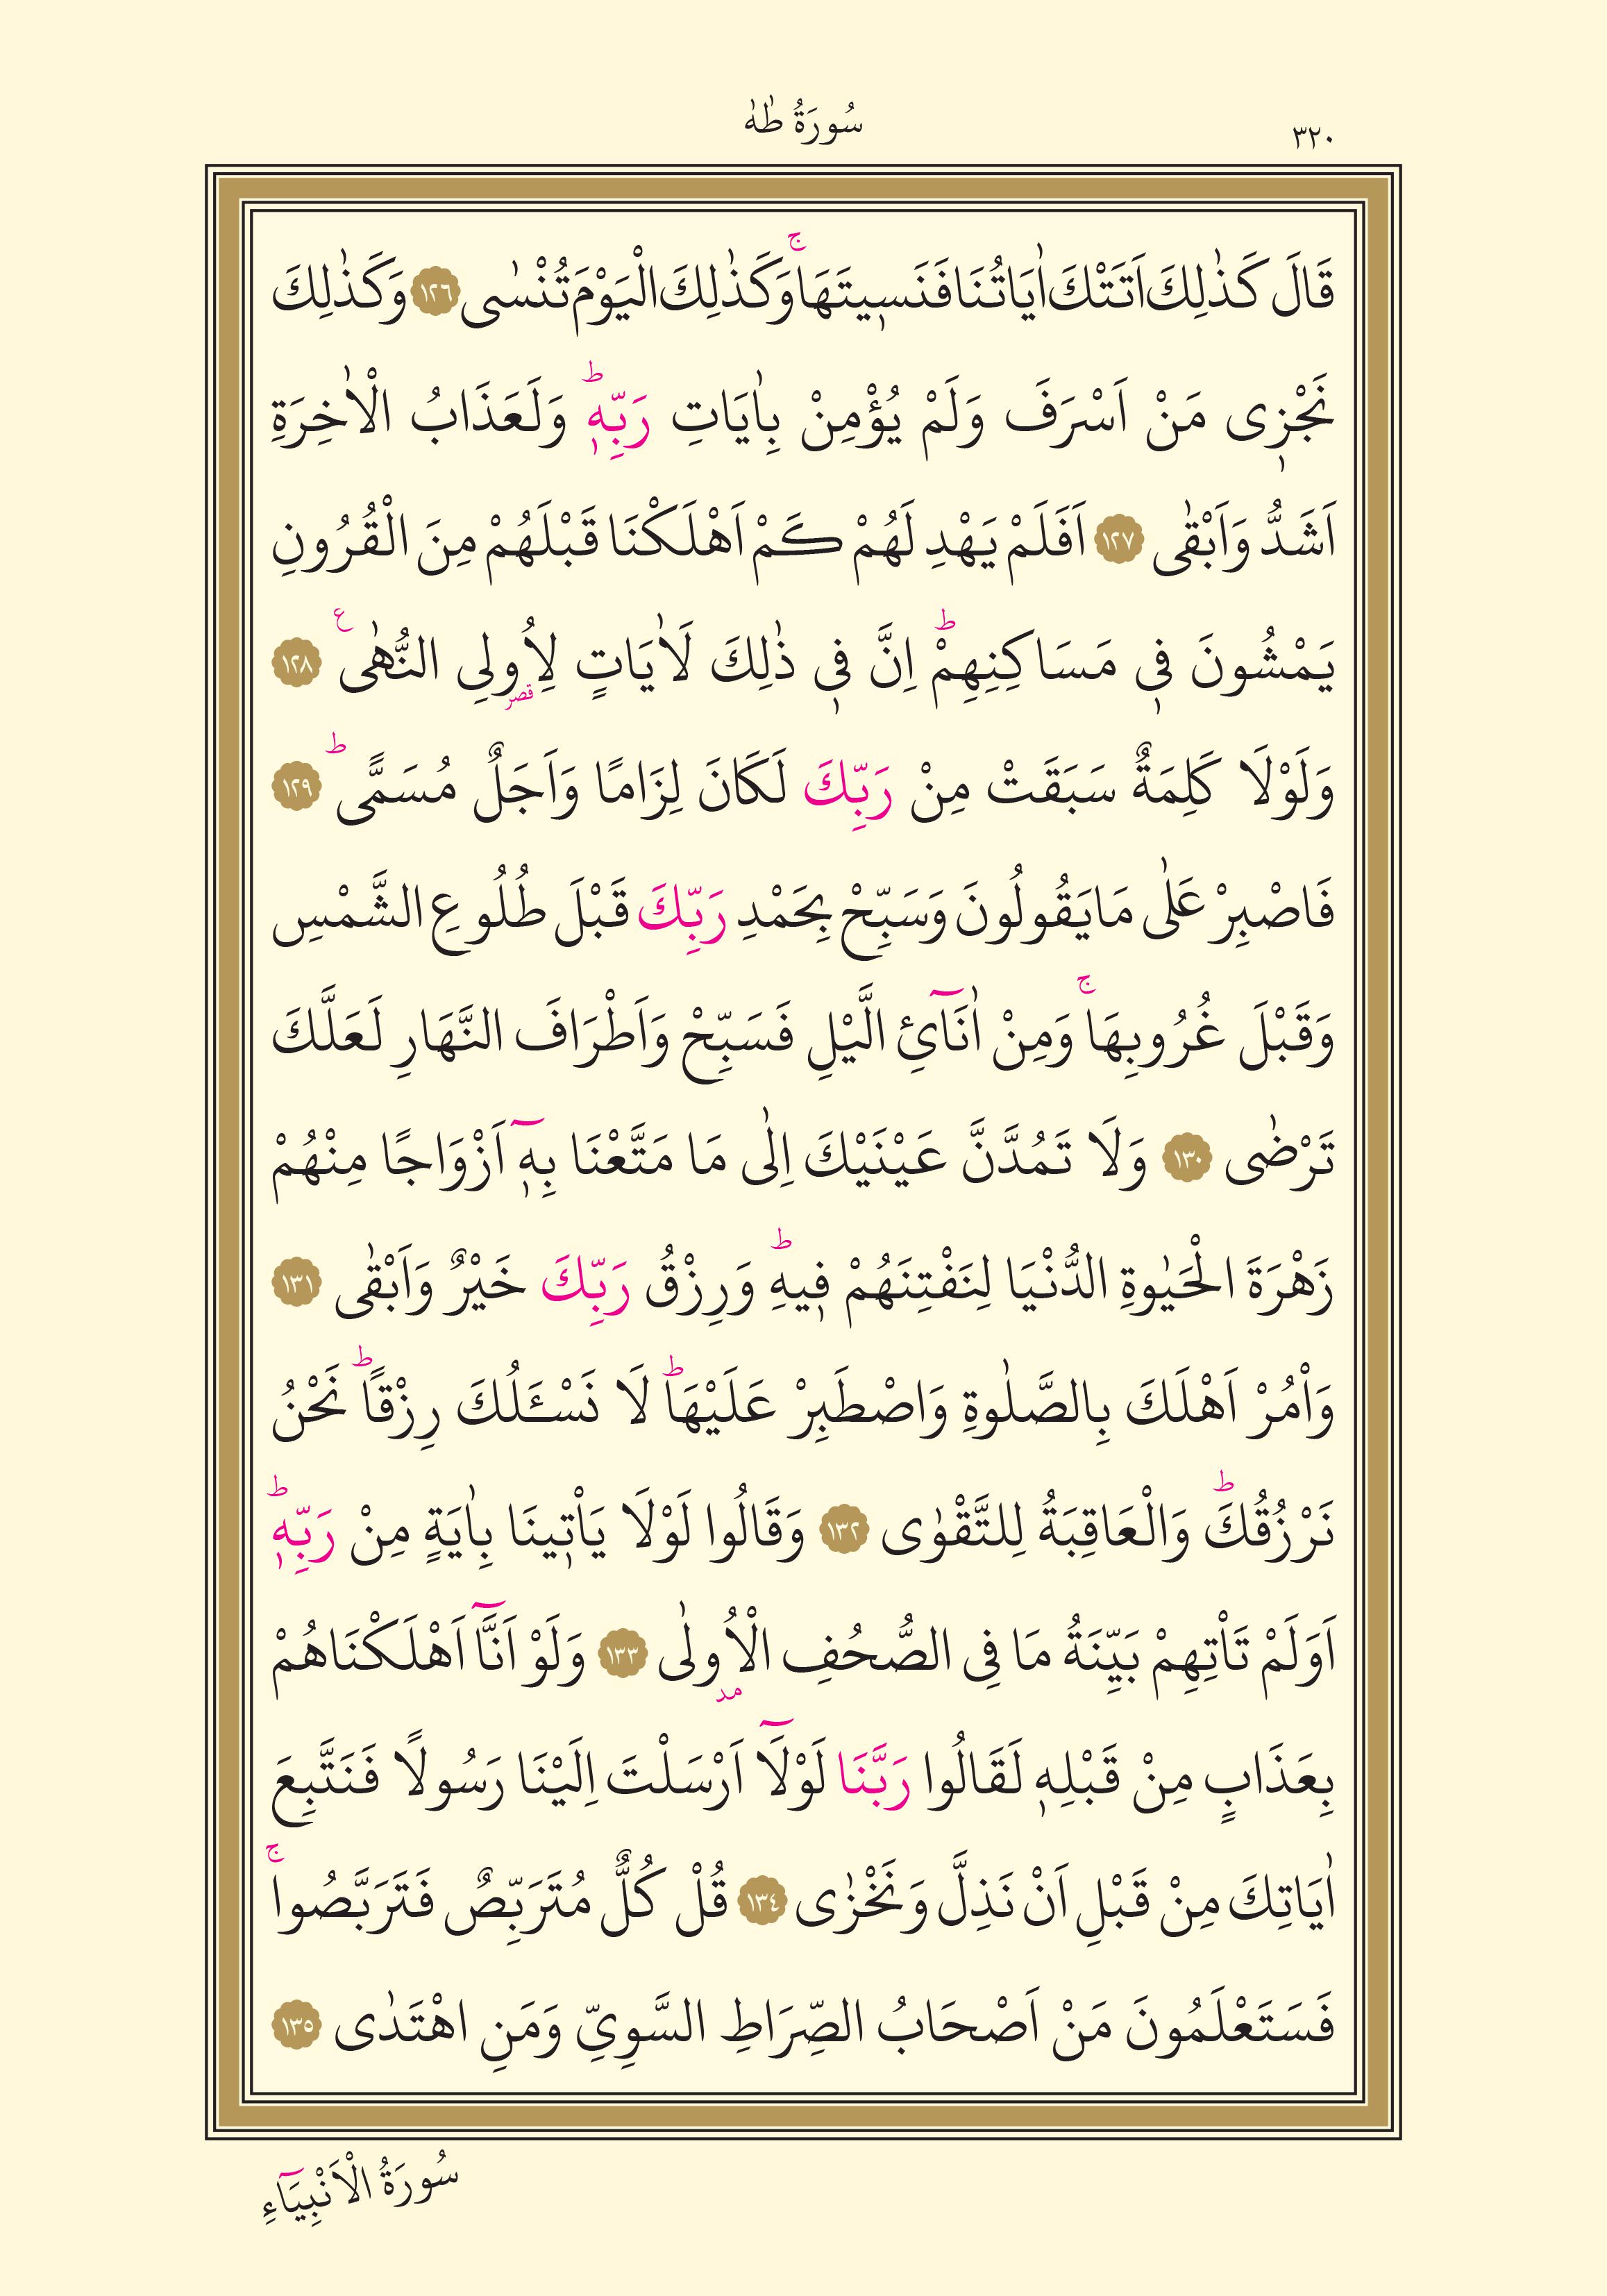 ٣٢٠
سُورَةُ طٰهٰ
قَالَ كَذٰلِكَ اَتَتْكَ اٰيَاتُنَا فَنَسٖيتَهَاۚ وَكَذٰلِكَ الْيَوْمَ تُنْسٰى ١٢٦ وَكَذٰلِكَ
نَجْزٖى مَنْ اَسْرَفَ وَلَمْ يُؤْمِنْ بِاٰيَاتِ رَبِّهٖؕ وَلَعَذَابُ الْاٰخِرَةِ
اَشَدُّ وَاَبْقٰى ١٢٧ اَفَلَمْ يَهْدِ لَهُمْ كَمْ اَهْلَكْنَا قَبْلَهُمْ مِنَ الْقُرُونِ
يَمْشُونَ فٖى مَسَاكِنِهِمْؕ اِنَّ فٖى ذٰلِكَ لَاٰيَاتٍ لِاُو۬لِى النُّهٰى ع ١٢٨
قصر
وَلَوْلَا كَلِمَةٌ سَبَقَتْ مِنْ رَبِّكَ لَكَانَ لِزَامًا وَاَجَلٌ مُسَمًّىؕ ١٢٩
فَاصْبِرْ عَلٰى مَا يَقُولُونَ وَسَبِّحْ بِحَمْدِ رَبِّكَ قَبْلَ طُلُوعِ الشَّمْسِ
وَقَبْلَ غُرُوبِهَاۚ وَمِنْ اٰنَٓائِ الَّيْلِ فَسَبِّحْ وَاَطْرَافَ النَّهَارِ لَعَلَّكَ
تَرْضٰى ١٣٠ وَلَا تَمُدَّنَّ عَيْنَيْكَ اِلٰى مَا مَتَّعْنَا بِهٖٓ اَزْوَاجًا مِنْهُمْ
زَهْرَةَ الْحَيٰوةِ الدُّنْيَا لِنَفْتِنَهُمْ فٖيهِؕ وَرِزْقُ رَبِّكَ خَيْرٌ وَاَبْقٰى ١٣١
وَاْمُرْ اَهْلَكَ بِالصَّلٰوةِ وَاصْطَبِرْ عَلَيْهَاؕ لَا نَسْـَٔلُكَ رِزْقًاؕ نَحْنُ
نَرْزُقُكَؕ وَالْعَاقِبَةُ لِلتَّقْوٰى ١٣٢ وَقَالُوا لَوْلَا يَاْتٖينَا بِاٰيَةٍ مِنْ رَبِّهٖؕ
اَوَلَمْ تَاْتِهِمْ بَيِّنَةُ مَا فِى الصُّحُفِ الْاُولٰى ١٣٣ وَلَوْ اَنَّٓا اَهْلَكْنَاهُمْ
مد
بِعَذَابٍ مِنْ قَبْلِهٖ لَقَالُوا رَبَّنَا لَوْلَٓا اَرْسَلْتَ اِلَيْنَا رَسُولًا فَنَتَّبِعَ
اٰيَاتِكَ مِنْ قَبْلِ اَنْ نَذِلَّ وَنَخْزٰى ١٣٤ قُلْ كُلٌّ مُتَرَبِّصٌ فَتَرَبَّصُواۚ
فَسَتَعْلَمُونَ مَنْ اَصْحَابُ الصِّرَاطِ السَّوِيِّ وَمَنِ اهْتَدٰى ١٣٥
سُورَةُ الْاَنْبِيَٓاءِ